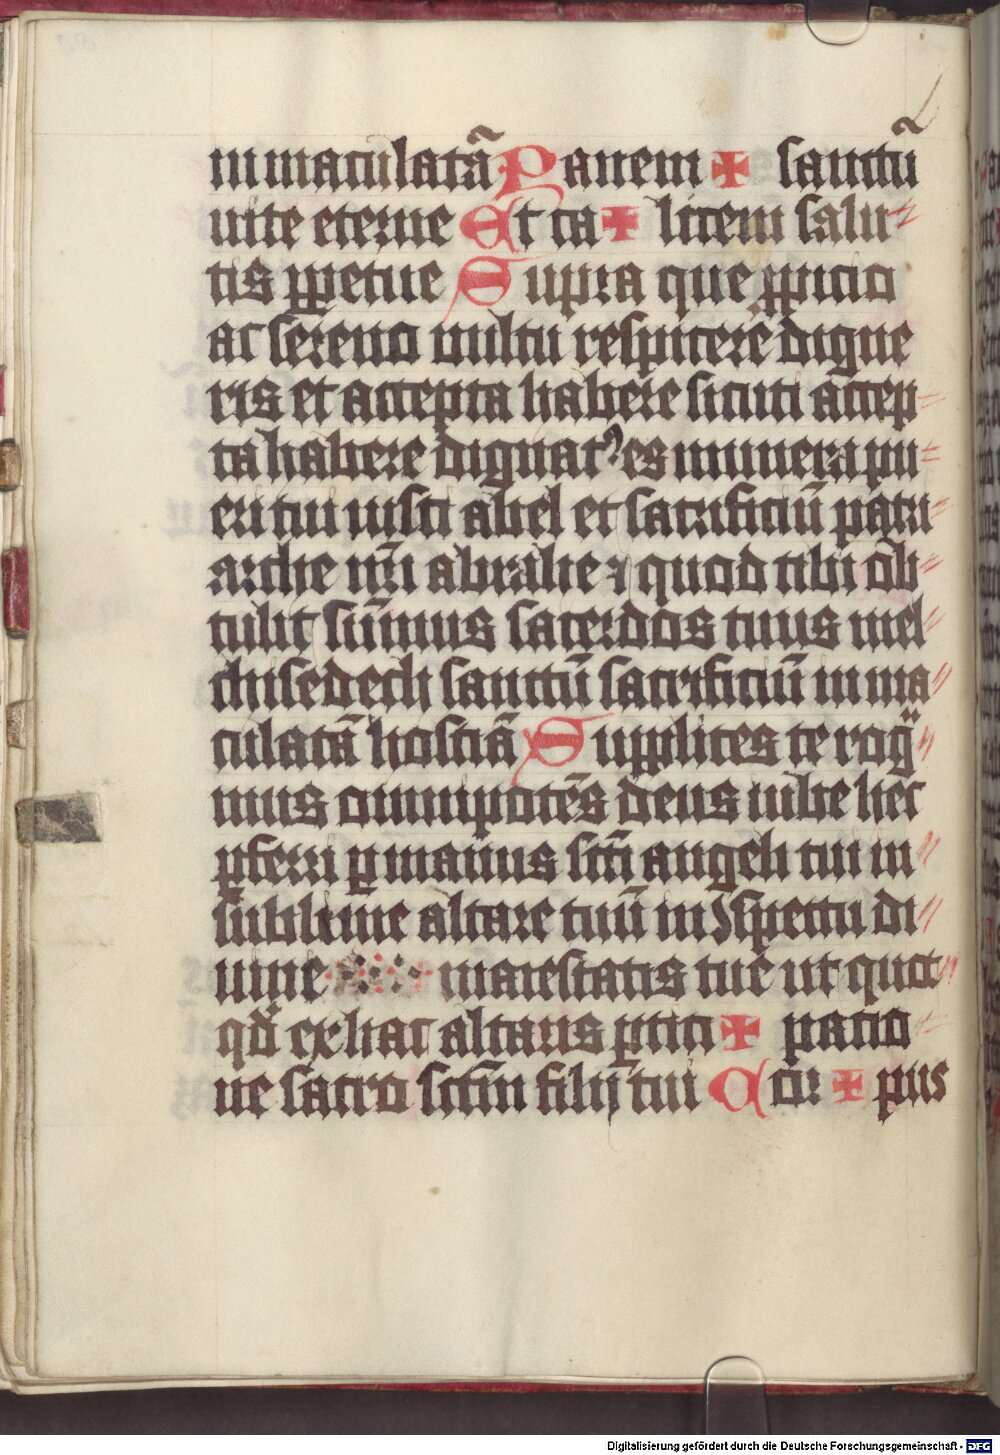 inmaculatā Panem ✠ sanctū
uite eterne Et ca ✠ licem salu
tis ꝑpetue Supra que ꝓpicio
ac sereno uultu respicere digne
ris et accepta habere sicuti accep
ta habere dignatꝰ es munera pu
eri tui iusti abel et sacrificiū patri
arche nr̄i abrahe ⁊ quod tibi ob
tulit sūmus sacerdos tuus mel
chisedech sanctū sacrificiū inma
culatā hostiā Supplices te roga
mus omnipotēs deus iube hec
ꝑferri ꝑ manus sc̄ti angeli tui in
sublime altare tuū in ꝯspectu di
uine maiestatis tue ut quot
qd̄ ex hac altaris ꝑtici ✠ patio
ne sacro sctm̄ filij tui Cor ✠ pus
Digitalisierung gefördert durch die Deutsche Forschungsgemeinschaft - DFG